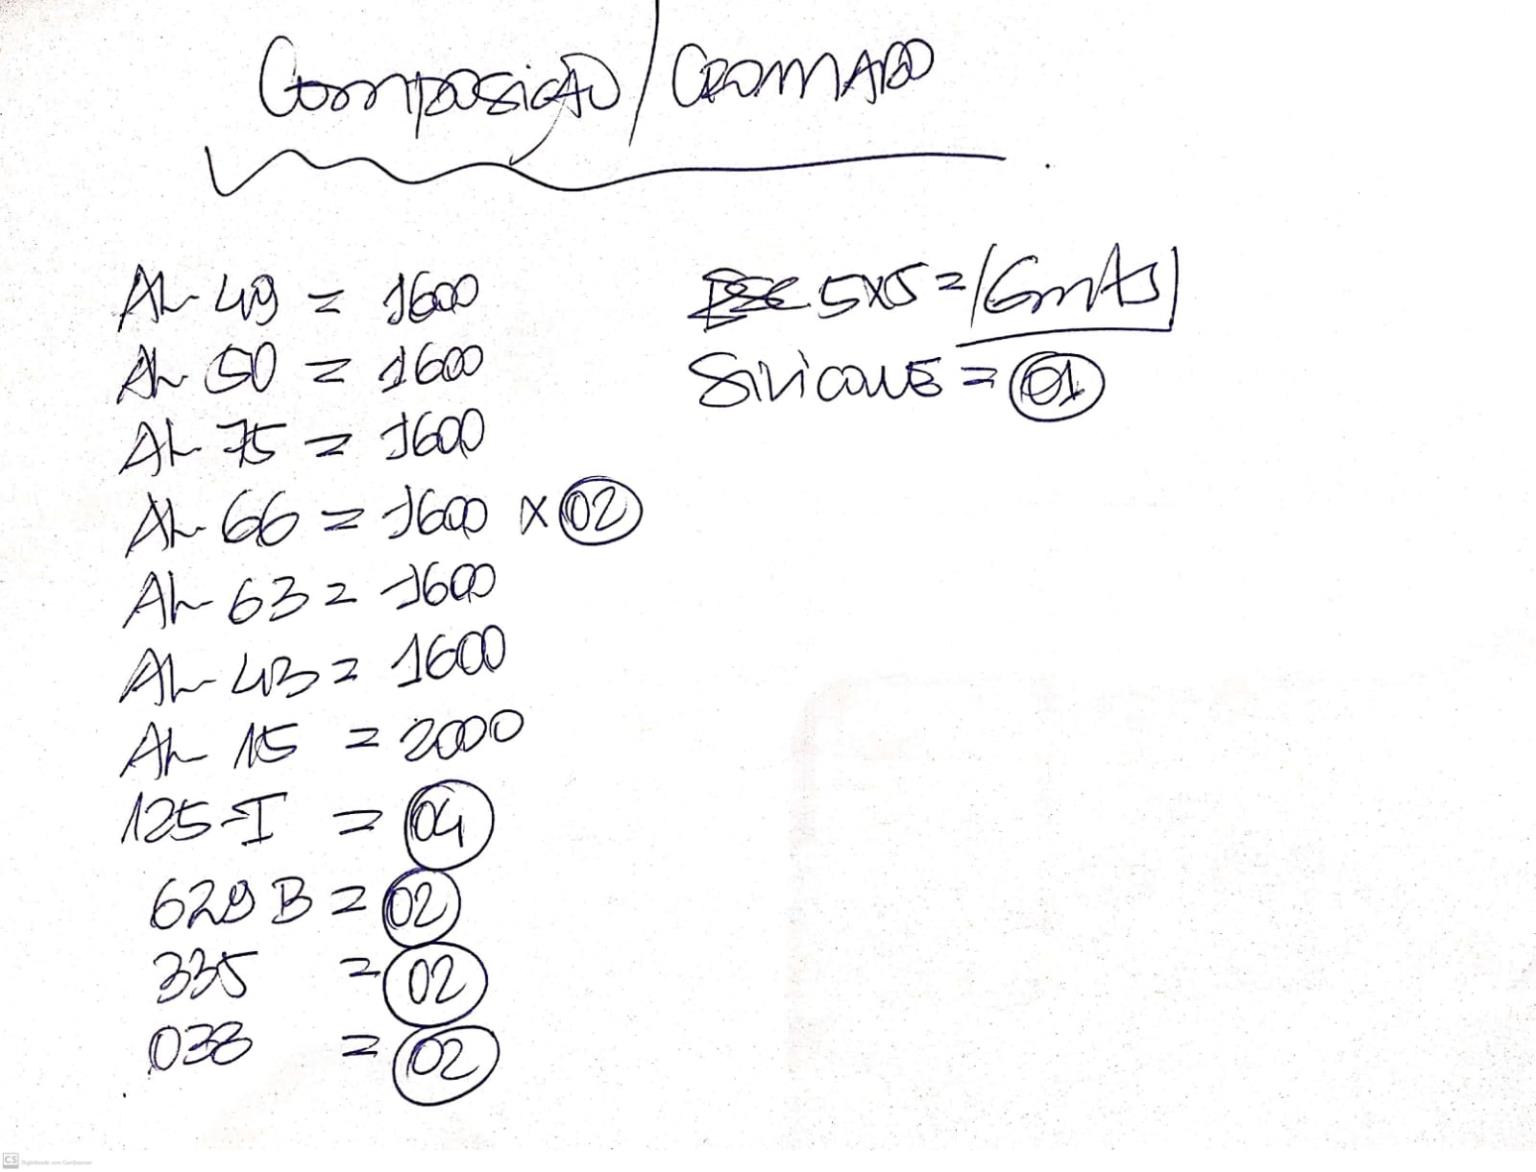 Composição / CROMADO
AL 49 = 1600
AL 50 = 1600
AL 75 = 1600
AL 66 = 1600 x 02
AL 63 = 1600
AL 43 = 1600
AL 15 = 2000
125-I = 04
629 B = 02
335 = 02
038 = 02
5x5 = 6mts
SILICONE = 01
CS Digitalizado com CamScanner